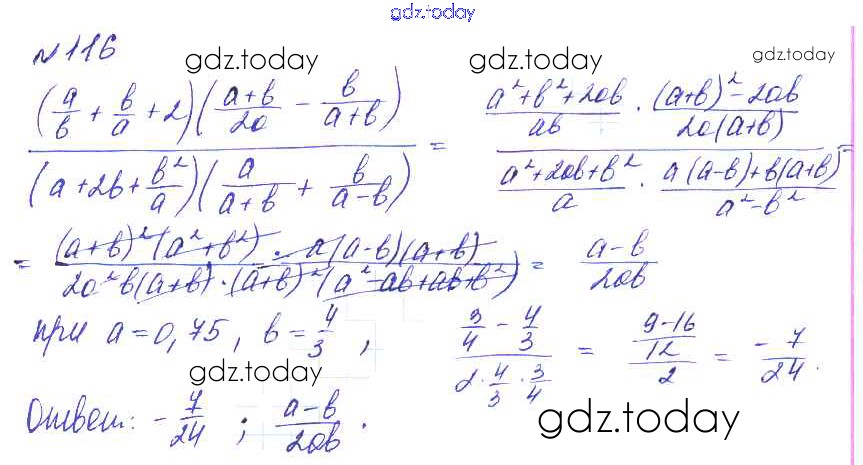 gdz.today
№116
gdz.today gdz.today gdz.today
((a/b + b/a + 2)((a+b)/2a - b/(a+b))) / ((a+2b+b²/a)(a/(a+b) + b/(a-b))) = ((a²+b²+2ab)/ab · ((a+b)²-2ab)/(2a(a+b))) / ((a²+2ab+b²)/a · (a(a-b)+b(a+b))/(a²-b²)) =
= ((a+b)²(a²+b²) · a(a-b)(a+b)) / (2a²b(a+b)·(a+b)²(a²-ab+ab+b²)) = (a-b)/2ab
при a=0,75, b=4/3, (3/4 - 4/3)/(2·4/3·3/4) = ((9-16)/12)/2 = -7/24.
gdz.today
Ответ: -7/24 ; (a-b)/2ab.
gdz.today